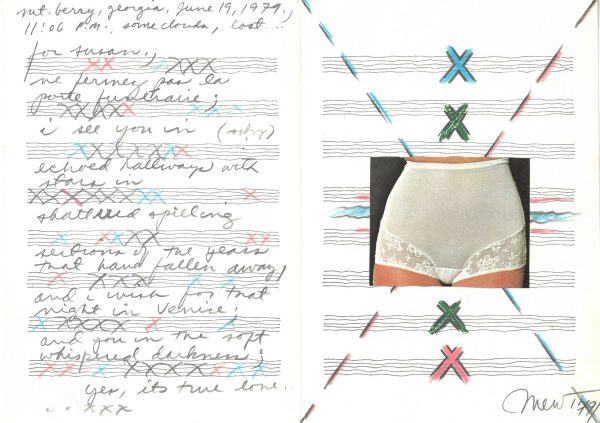 mt. berry, georgia, june 19, 1979.,
11:06 P.M., some clouds, lost...
for susan.,
ne fermez pas la
porte funetraire;
i see you in
echoed hallways with
stars in
shattered spilling
sections of the years
that have fallen away,
and i wish for that
night in Venice;
and you in the soft
whispered darkness;
yes, its true love..
xxx